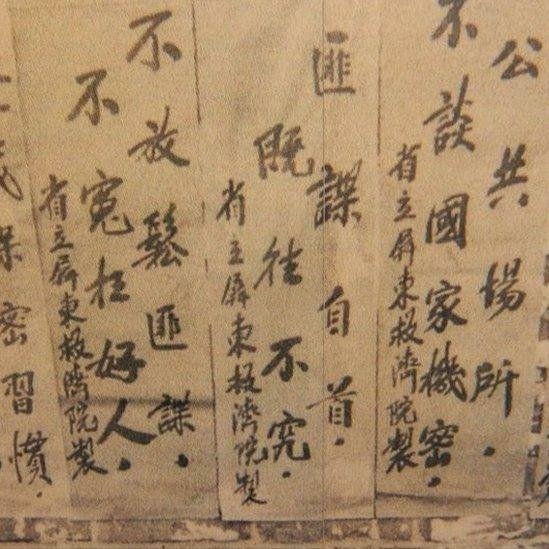 公共場所.
不談國家機密.
省立屏東救濟院製
匪諜自首.
既往不究.
省立屏東救濟院製
不放鬆匪諜.
不冤枉好人.
省立屏東救濟院製
保密習慣.